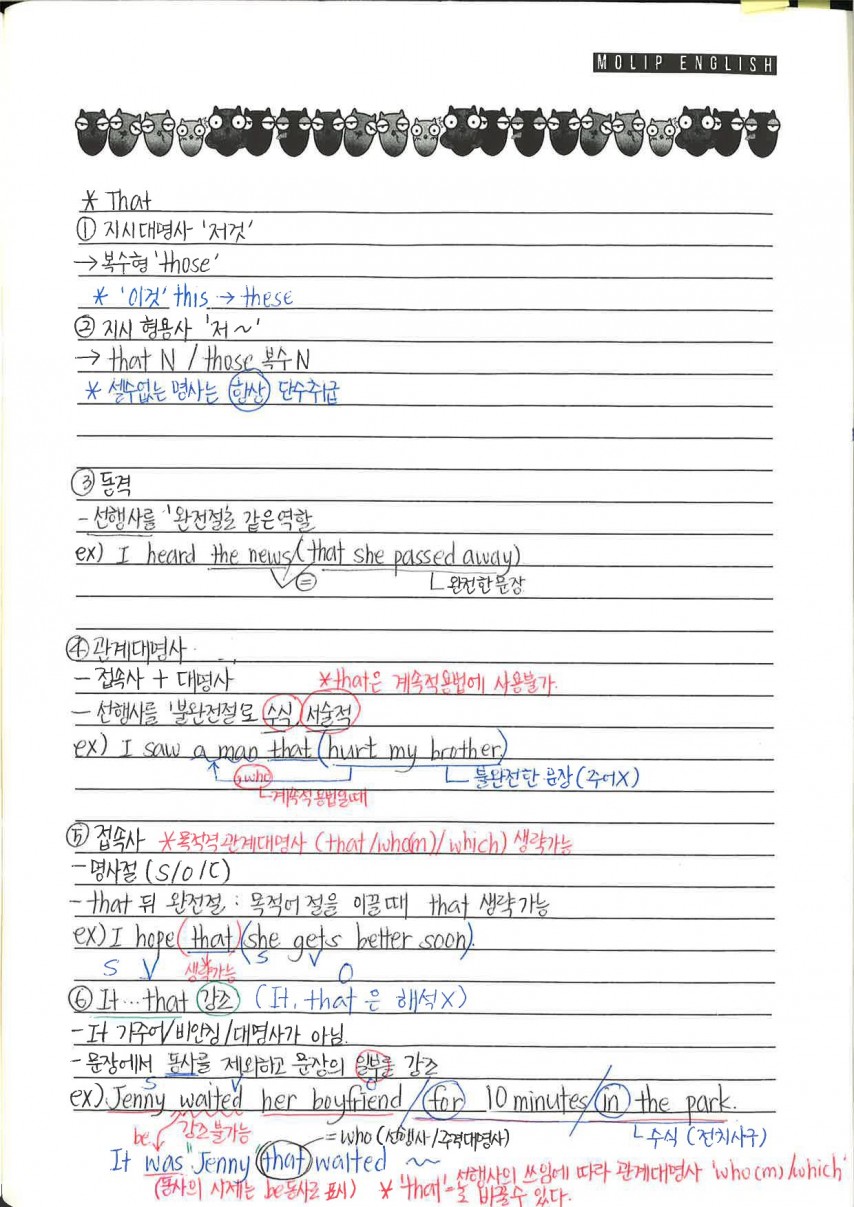 MOLIP ENGLISH
* That
① 지시대명사 '저것'
→ 복수형 'those'
* '이것' this → these
② 지시 형용사 '저 ~'
→ that N / those 복수 N
* 셀수없는 명사는 항상 단수취급
③ 동격
- 선행사를 '완전절'로 같은역할
ex) I heard the news (that she passed away)
= 완전한문장
④ 관계대명사
- 접속사 + 대명사 *that은 계속적용법에 사용불가.
- 선행사를 '불완전절'로 수식, 서술적
ex) I saw a man that (hurt my brother)
, who 불완전한 문장 (주어X)
계속적용법일때
⑤ 접속사 *목적격관계대명사 (that/who(m)/which) 생략가능
- 명사절 (S/O/C)
- that 뒤 완전절 : 목적어 절을 이끌때 that 생략가능
ex) I hope (that) (she gets better soon).
S V 생략가능 S V O
⑥ It…that 강조 (It, that 은 해석X)
- It 가주어/비인칭/대명사가 아님.
- 문장에서 동사를 제외하고 문장의 일부를 강조
S V O
ex) Jenny waited her boyfriend / for 10 minutes / in the park.
be 강조불가능 = who (선행사/주격대명사) 수식 (전치사구)
It was "Jenny" that waited ~
(동사의 시제는 be동사로 표시) * 'that'은 선행사의 쓰임에 따라 관계대명사 'who(m)/which'
로 바꿀수 있다.